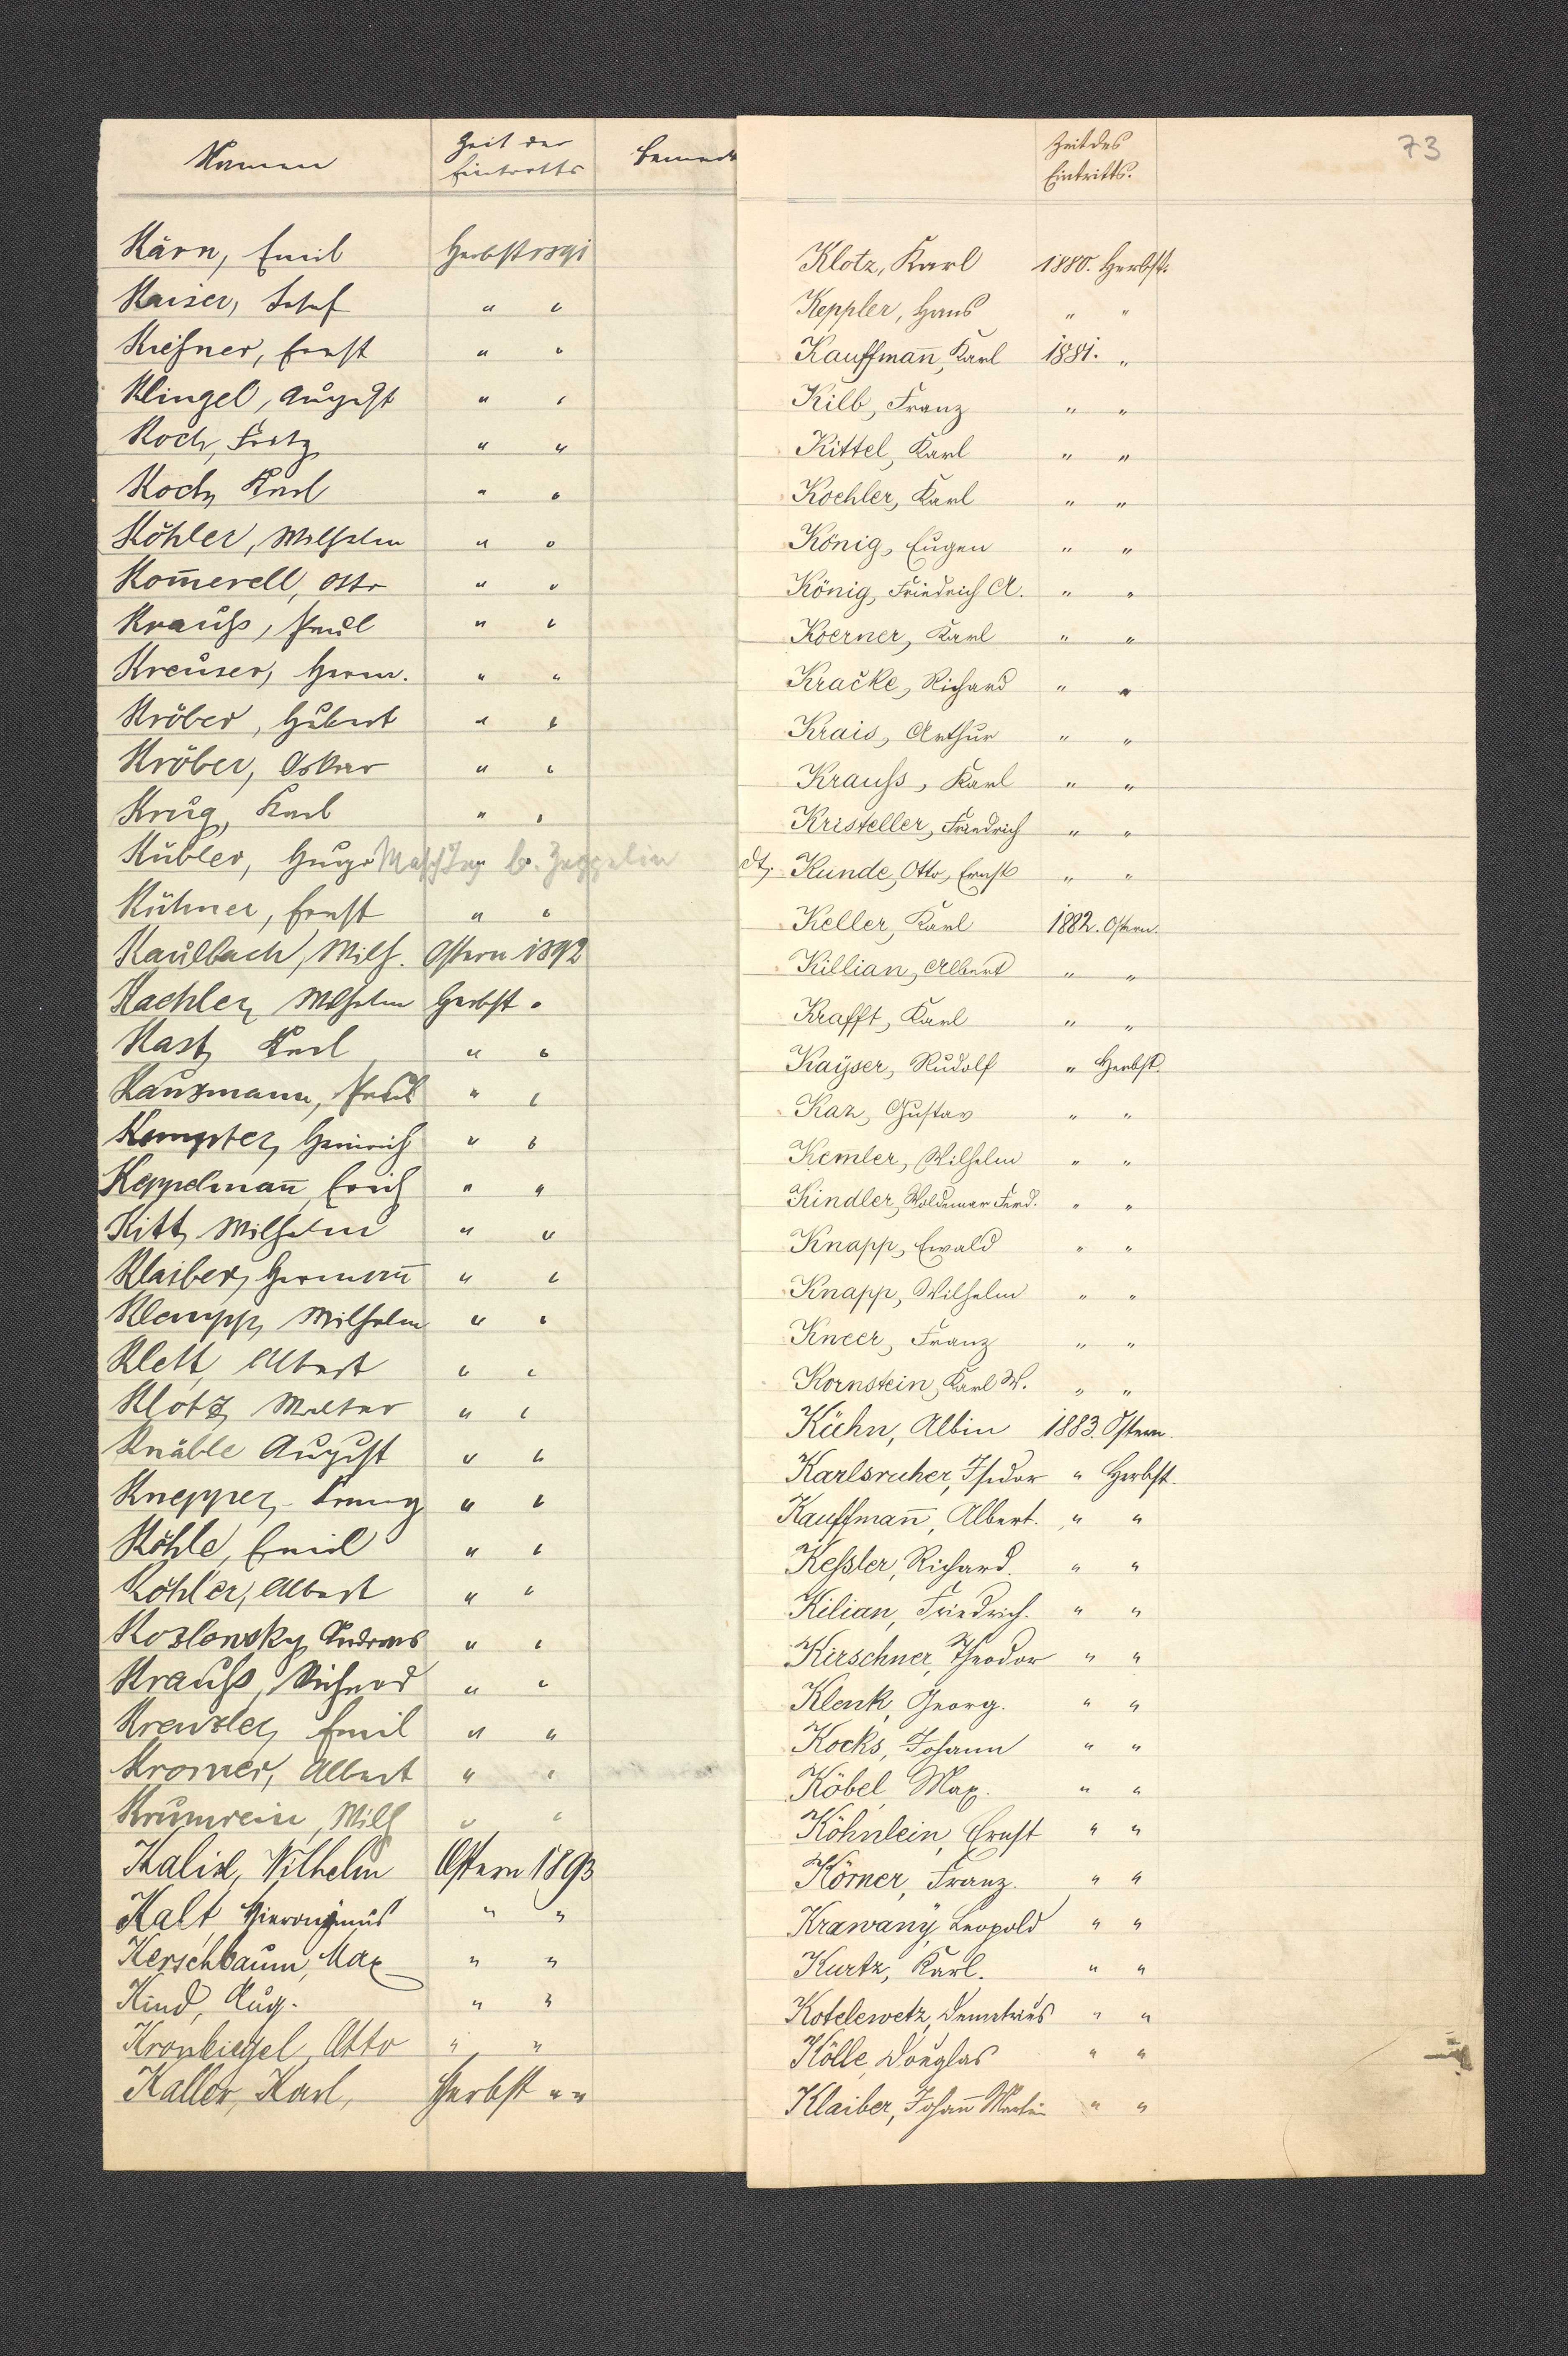 Namen Zeit des Eintritts Bemerk
Kärn, Emil Herbst 1891
Kaiser, Josef " "
Kießner, Ernst " "
Klingel, August " "
Koch, Fritz " "
Koch, Karl " "
Köhler, Wilhelm " "
Kom̄erell, Otto " "
Krauß, Paul " "
Kreuser, Herm. " "
Kröber, Hubert " "
Kröber, Oskar " "
Krug, Karl " "
Kübler, Hugo Masch Ing b. Zeppelin
Kühner, Ernst " "
Kaulbach, Wilh. Ostern 1892
Kaehler, Wilhelm Herbst "
Kast, Karl " "
Kauzmann, Paul " "
Kempter, Heinrich " "
Keppelman̄, Erich " "
Kitt, Wilhelm " "
Klaiber, Herman̄ " "
Klempp, Wilhelm " "
Klett, Albert " "
Klotz, Walter " "
Knäble August " "
Knepper, Franz " "
Köhle, Emil " "
Köhler, Albert " "
Koslowsky, Andreas " "
Krauß, Richard " "
Krenzler, Emil " "
Kromer, Albert " "
Krumrein, Wilh " "
Wilhelm Ostern 1893
Kalt Hieronymus " "
Kerschbaum, Max " "
Kind, Aug. " "
Kronbiegel, Otto " "
Kaller, Karl, Herbst " "
73
Zeit des Eintritts.
Klotz, Karl 1880. Herbst.
Keppler, Hans " "
Kauffman̄, Karl 1881. "
Kilb, Franz " "
Kittel, Karl " "
Koehler, Karl " "
König, Eugen " "
König, Friedrich A. " "
Koerner, Karl " "
Kracke, Richard " "
Krais, Arthur " "
Krauß, Karl " "
Kristeller, Friedrich " "
dt. Kunde, Otto, Ernst " "
Keller, Karl 1882. Ostern.
Killian, Albert " "
Krafft, Karl " "
Kayser, Rudolf " Herbst.
Kaz, Gustav " "
Kemler, Wilhelm " "
Kindler, Woldemar Ferd. " "
Knapp, Ewald " "
Knapp, Wilhelm " "
Kneer, Franz " "
Kornstein, Karl W. " "
Kühn, Albin 1883. Ostern.
Karlsruher, Isidor " Herbst.
Kauffman̄, Albert. " "
Keßler, Richard. " "
Kilian, Friedrich. " "
Kirschner, Theodor " "
Klenk, Georg. " "
Kocks, Johann " "
Köbel, Max. " "
Köhnlein, Ernst " "
Körner, Franz. " "
Krawany, Leopold " "
Kurtz, Karl. " "
Kotelewetz, Demetrius " "
Kölle, Douglas " "
Klaiber, Johan̄ Martin " "